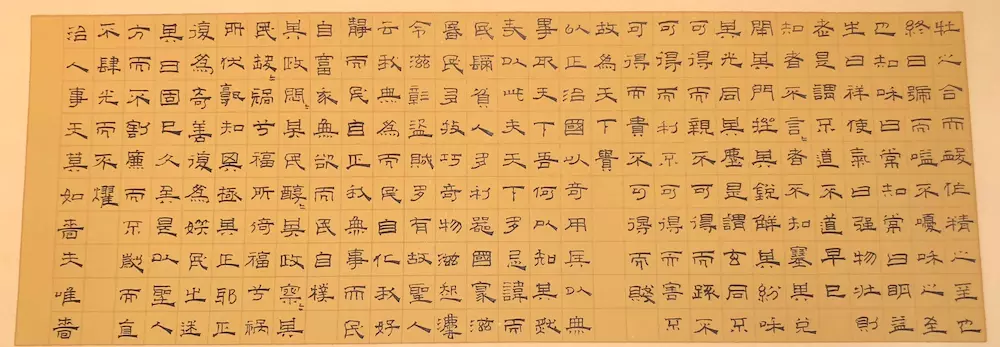 牡之合而朘作精之至也
終日號而嗌不嚘咊之至
也知咊曰常知常曰明益
生曰祥使氣曰強物壯則
老是謂不道不道早已
知者不言=者不知塞其兌
閉其門挫其銳解其紛咊
其光同其塵是謂玄同不
可得而親不可得而疏不
可得而利不可得而害不
可得而貴不可得而賤
故為天下貴
以正治國以奇用兵以無
事取天下吾何以知其然
夫以此夫天下多忌諱而
民彌貧人多利器國家滋
昬民多技巧奇物滋起灋
令滋彰盜賊多有故聖人
云我無為而民自化我好
靜而民自正我無事而民
自富家無欲而民自樸
其政悶=其民醇=其政察=其
民缺=禍兮福所倚福兮禍
所伏孰知其極其正耶正
復為奇善復為妖民之迷
其日固已久矣是以聖人
方而不割廉而不劌而直
不肆光而不燿
治人事天莫如嗇夫唯嗇